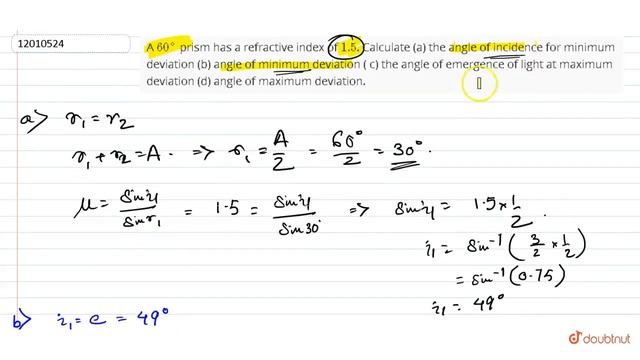 12010524
A 60° prism has a refractive index of 1.5. Calculate (a) the angle of incidence for minimum
deviation (b) angle of minimum deviation ( c) the angle of emergence of light at maximum
deviation (d) angle of maximum deviation.
a> r₁ = r₂
r₁ + r₂ = A . => r₁ = A/2 = 60°/2 = 30° .
μ = sin i₁/sin r₁ = 1.5 = sin i₁/sin 30° => sin i₁ = 1.5 × 1/2 .
i₁ = sin⁻¹ (3/2 × 1/2)
= sin⁻¹ (0.75)
i₁ = 49°
b> i₁ = e = 49°
doubtnut